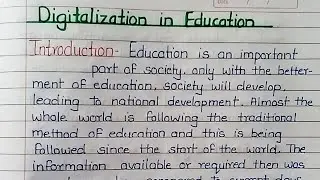 Digitalization in Education
Introduction- Education is an important
part of society. only with the better-
ment of education, society will develop,
leading to national development. Almost the
whole world is following the traditional
method of education and this is being
followed since the start of the world. The
information available or required then was
compared to current days